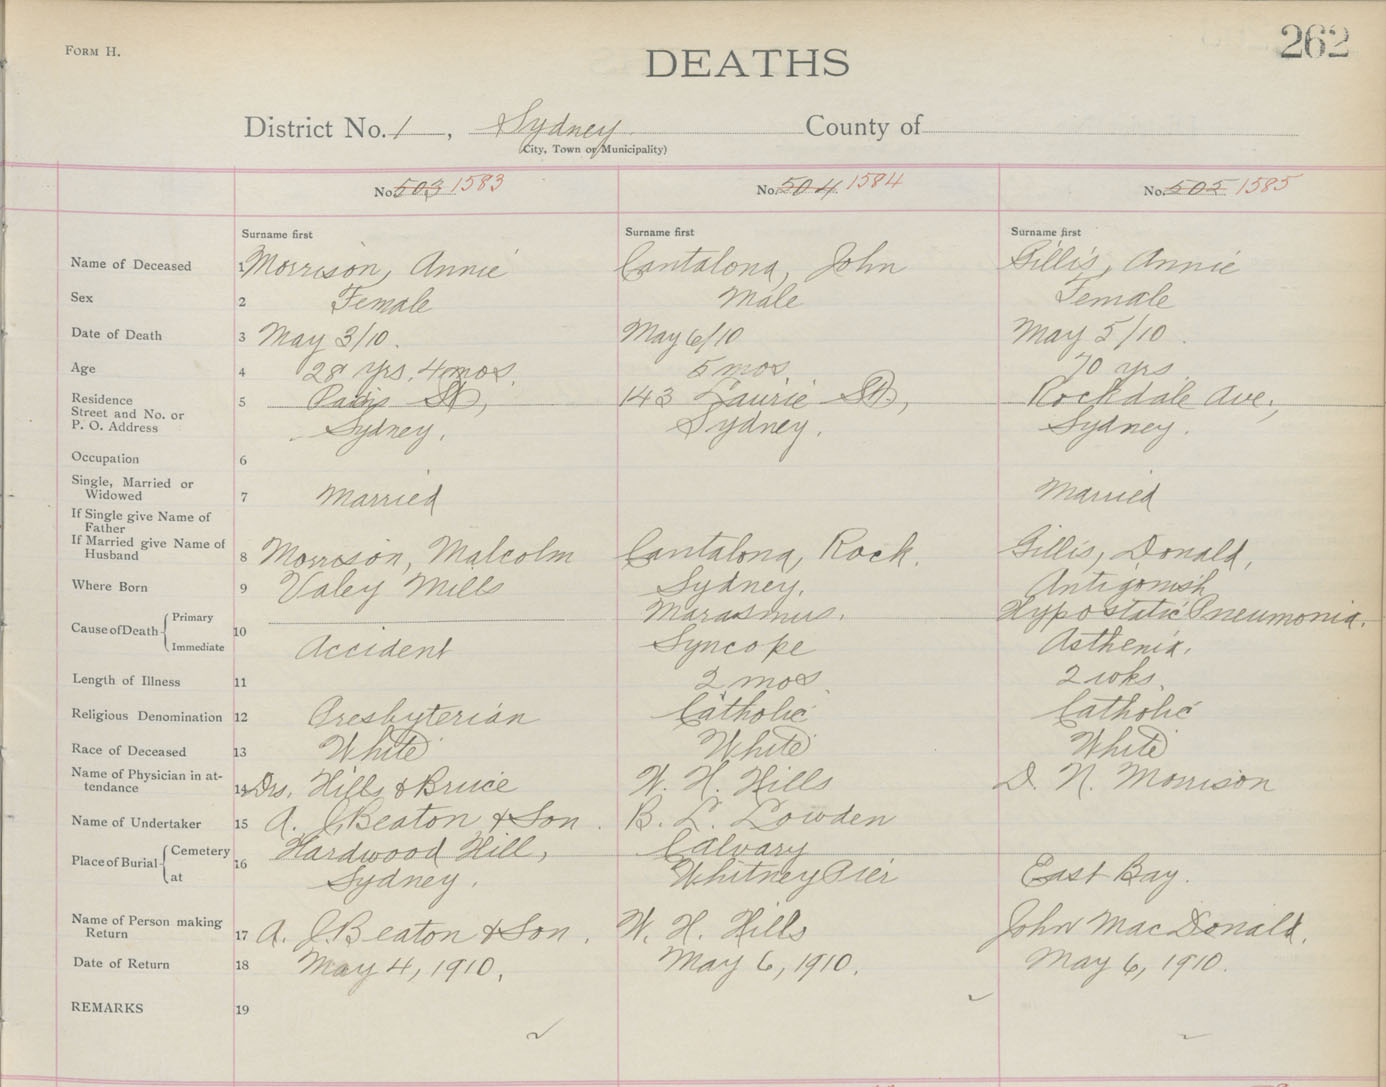 FORM H.
262
DEATHS
District No. 1, Sydney County of
(City, Town or Municipality)
No. 503 1583 No. 504 1584 No. 505 1585
Surname first Surname first Surname first
Name of Deceased 1 Morrison, Annie Cantalona, John Gillis, Annie
Sex 2 Female Male Female
Date of Death 3 May 3/10. May 6/10 May 5/10.
Age 4 28 yrs. 4 mos. 5 mos 70 yrs
Residence 5 St, 143 Laurie St., Rockdale Ave.,
Street and No. or
P. O. Address Sydney. Sydney. Sydney.
Occupation 6
Single, Married or
Widowed 7 Married Married
If Single give Name of
Father
If Married give Name of
Husband 8 Morrison, Malcolm Cantalona, Rock. Gillis, Donald,
Where Born 9 Valey Mills Sydney. Antigonish
Cause of Death Primary Marasmus. Hypostatic Pneumonia.
10
Immediate Accident Syncope Asthenia.
Length of Illness 11 2 mos 2 wks.
Religious Denomination 12 Presbyterian Catholic Catholic
Race of Deceased 13 White White White
Name of Physician in at-
tendance 14 Drs. Hills & Bruce W. H. Hills D. N. Morrison
Name of Undertaker 15 A. J. Beaton & Son. B. L. Lowden
Place of Burial Cemetery Hardwood Hill, Calvary
16
at Sydney. Whitney Pier East Bay.
Name of Person making
Return 17 A. J. Beaton & Son. W. H. Hills John MacDonald.
Date of Return 18 May 4, 1910. May 6, 1910. May 6, 1910.
REMARKS 19